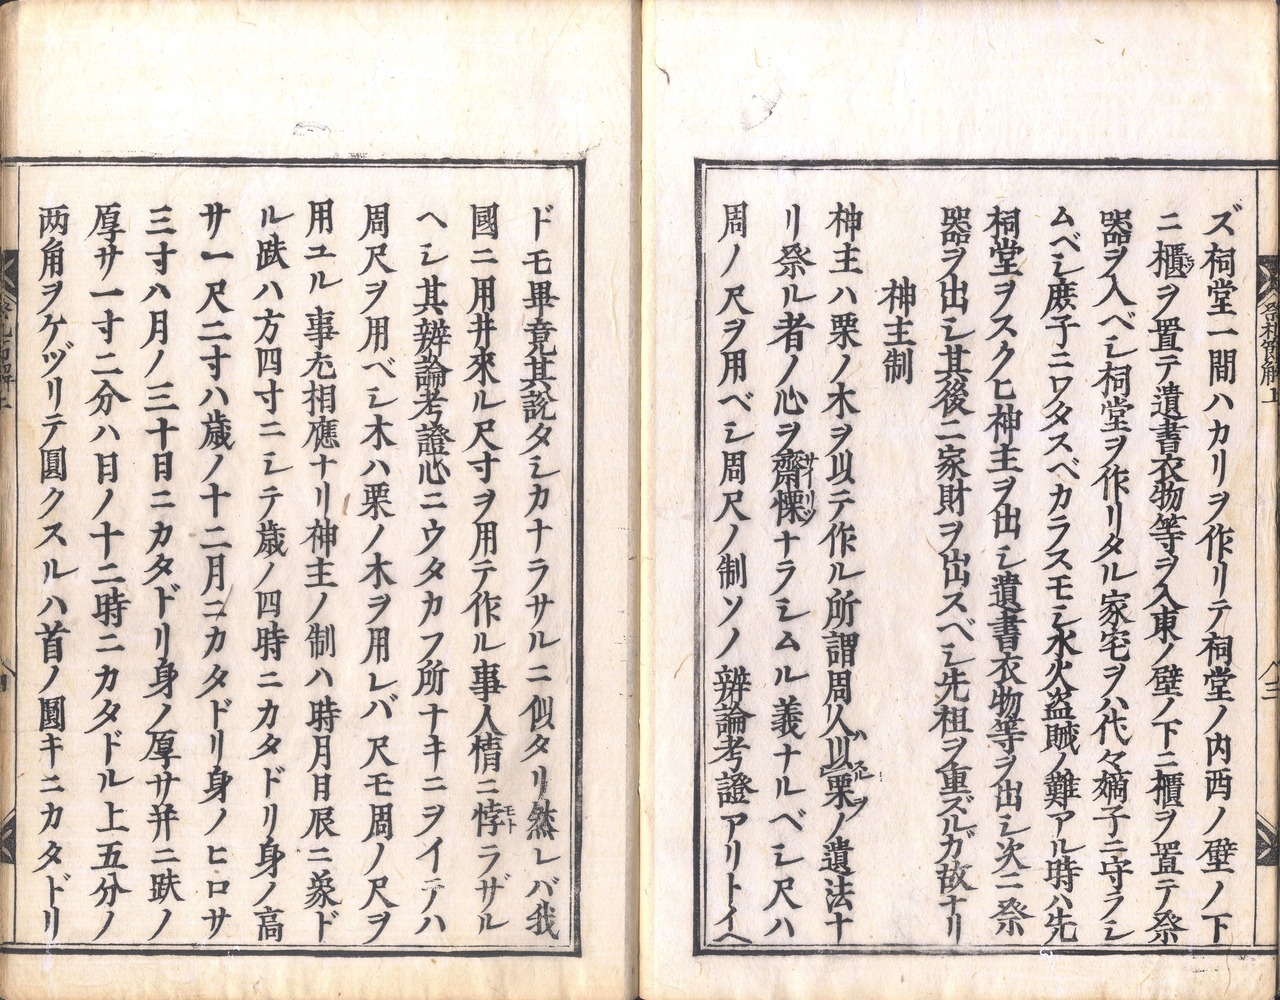 ズ祠堂一間ハカリヲ作リテ祠堂ノ内西ノ壁ノ下
ニ櫃ヲ置テ遺書衣物等ヲ入東ノ壁ノ下ニ櫃ヲ置テ祭
器ヲ入ベシ祠堂ヲ作リタル家宅ヲハ代々嫡子ニ守ラシ
ムベシ庶子ニワタスベカラスモシ水火盗賊ノ難アル時ハ先
祠堂ヲスクヒ神主ヲ出シ遺書衣物等ヲ出シ次ニ祭
器ヲ出シ其後ニ家財ヲ出スベシ先祖ヲ重ズルガ故ナリ
神主制
神主ハ栗ノ木ヲ以テ作ル所謂周人以栗ノ遺法ナ
リ祭ル者ノ心ヲ齋慄ナラシムル義ナルベシ尺ハ
周ノ尺ヲ用ベシ周尺ノ制ソノ辨論考證アリトイヘ
ドモ畢竟其説タシカナラサルニ似タリ然レバ我
國ニ用井來ル尺寸ヲ用テ作ル事人情ニ悖ラザル
ヘシ其辨論考證心ニウタカフ所ナキニヲイテハ
周尺ヲ用ベシ木ハ栗ノ木ヲ用レバ尺モ周ノ尺ヲ
用ユル事尤相應ナリ神主ノ制ハ時月日辰ニ象ド
ル趺ハ方四寸ニシテ歳ノ四時ニカタドリ身ノ高
サ一尺二寸ハ歳ノ十二月ニカタドリ身ノヒロサ
三寸ハ月ノ三十日ニカタドリ身ノ厚サ并ニ趺ノ
厚サ一寸二分ハ日ノ十二時ニカタドル上五分ノ
两角ヲケヅリテ圓クスルハ首ノ圓キニカタドリ